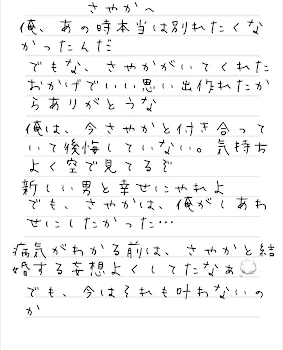 さやかへ
俺、あの時本当は別れたくな
かったんだ
でもな、さやかがいてくれた
おかげでいい思い出作れたか
らありがとうな
俺は、今さやかと付き合って
いて後悔していない。気持ち
よく空で見てるぞ
新しい男と幸せにやれよ
でも、さやかは、俺がしあわ
せにしたかった…
病気がわかる前は、さやかと結
婚する妄想よくしてたなぁ
でも、今はそれも叶わないの
か